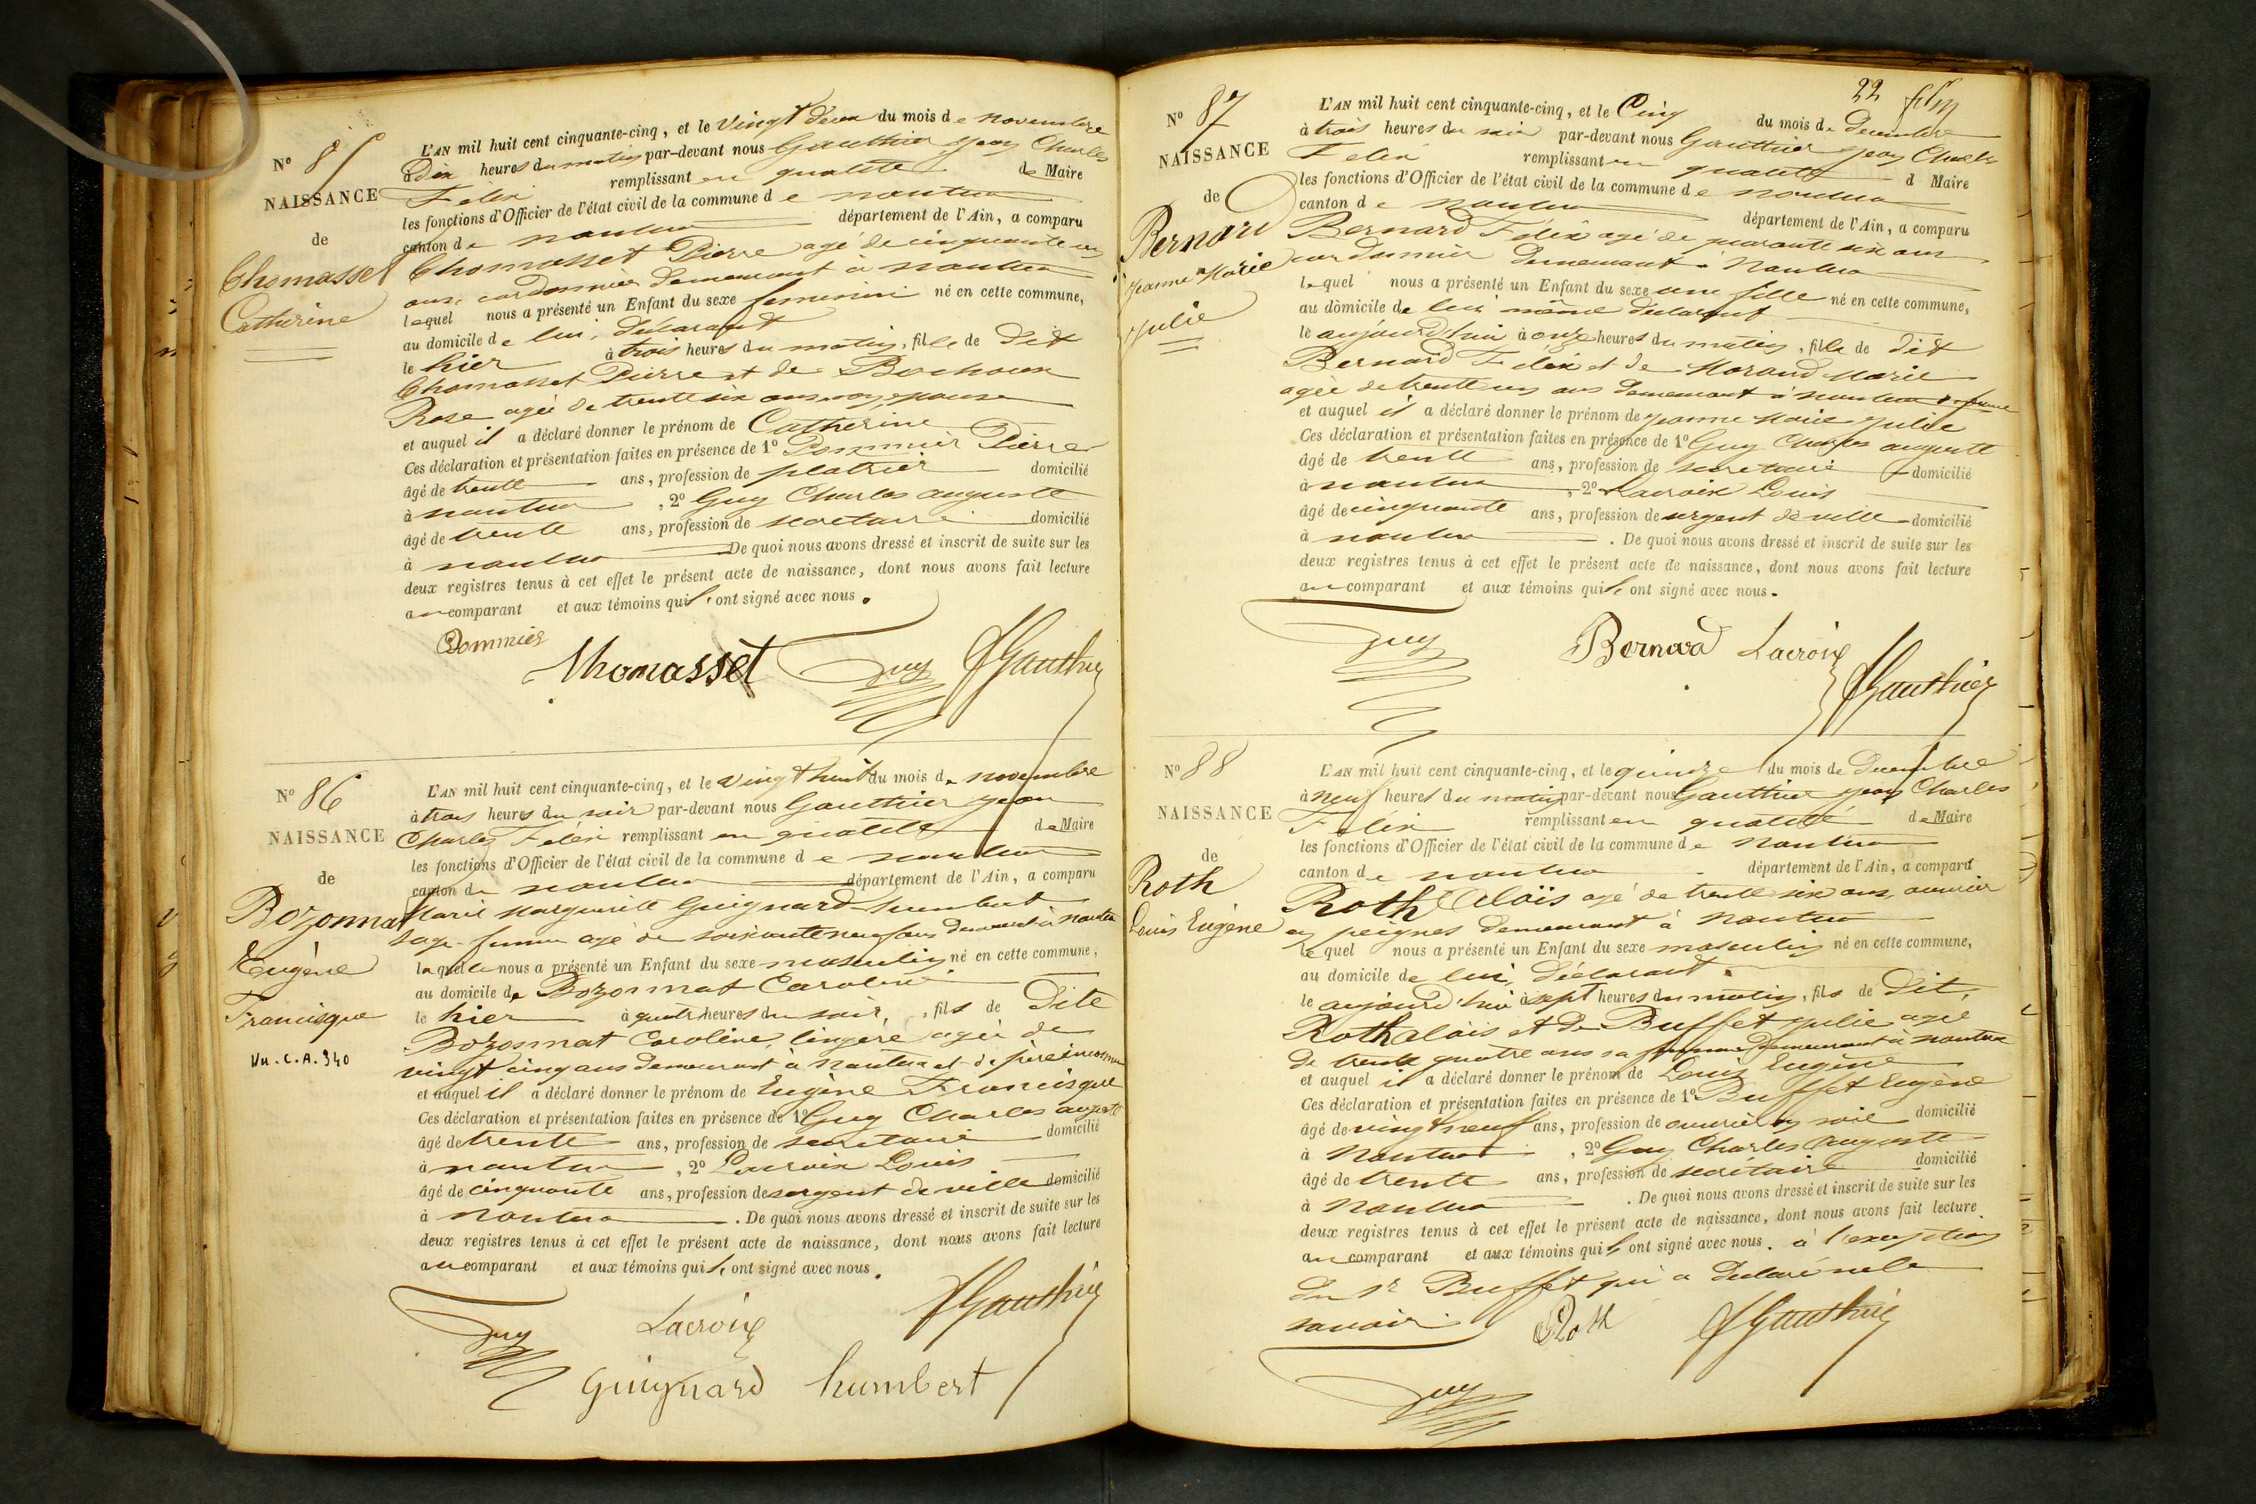 N° 85
NAISSANCE
de
Thomasset
Catherine
L'AN mil huit cent cinquante-cinq, et le vingt deux du mois de novembre
à dix heures du matin par-devant nous Gauthier Jean Charles
Felix remplissant en qualité de Maire
les fonctions d'Officier de l'état civil de la commune de nantua
canton de nantua département de l'Ain, a comparu
Thomasset Pierre agé de cinquante un
ans, cordonnier demeurant à nantua
lequel nous a présenté un Enfant du sexe feminin né en cette commune,
au domicile de lui, déclarant
le hier à trois heures du matin, fille de dit
Thomasset Pierre et de Bochoux
Rose agée de trente six ans son épouse
et auquel il a déclaré donner le prénom de Catherine
Ces déclaration et présentation faites en présence de 1° Pommier Pierre
âgé de trente ans, profession de platrier domicilié
à nantua, 2° Guy Charles auguste
âgé de trente ans, profession de secretaire domicilié
à nantua De quoi nous avons dressé et inscrit de suite sur les
deux registres tenus à cet effet le présent acte de naissance, dont nous avons fait lecture
au comparant et aux témoins qui l'ont signé avec nous.
Pommier
Thomasset Guy JGauthier
N° 86
NAISSANCE
de
Bozonnat
Eugène
Francisque
Vu. C.A. 340
L'AN mil huit cent cinquante-cinq, et le vingt huit du mois de novembre
à trois heures du soir par-devant nous Gauthier Jean
Charles Felix remplissant en qualité de Maire
les fonctions d'Officier de l'état civil de la commune de nantua
canton de nantua département de l'Ain, a comparu
Marie Marguerite Guignard humbert
sage-femme agé de soixante neuf ans demeurant à nantua
laquelle nous a présenté un Enfant du sexe masculin né en cette commune,
au domicile de Bozonnat Caroline
le hier à quatre heures du soir, fils de dite
Bozonnat Caroline, lingère agée de
vingt cinq ans demeurant à nantua et de père inconnu
et auquel il a déclaré donner le prénom de Eugène Francisque
Ces déclaration et présentation faites en présence de 1° Guy Charles auguste
âgé de trente ans, profession de secretaire domicilié
à nantua, 2° Lacroix Louis
âgé de cinquante ans, profession de sergent de ville domicilié
à nantua. De quoi nous avons dressé et inscrit de suite sur les
deux registres tenus à cet effet le présent acte de naissance, dont nous avons fait lecture
au comparant et aux témoins qui l'ont signé avec nous.
Guy Lacroix JGauthier
guignard humbert
22 film
N° 87
NAISSANCE
de
Bernard
Jeanne Marie
Julie
L'AN mil huit cent cinquante-cinq, et le Cinq du mois de decembre
à trois heures du soir par-devant nous Gauthier Jean Charles
Felix remplissant en qualité d Maire
les fonctions d'Officier de l'état civil de la commune de nantua
canton de nantua département de l'Ain, a comparu
Bernard Felix agé de quarante six ans
cordonnier demeurant à Nantua
lequel nous a présenté un Enfant du sexe une fille né en cette commune,
au domicile de lui même déclarant
le aujourd'hui à onze heures du matin, fille de dit
Bernard Felix et de Morand Marie
agée de trente un ans demeurant à nantua sa femme
et auquel il a déclaré donner le prénom de Jeanne Marie Julie
Ces déclaration et présentation faites en présence de 1° Guy Charles auguste
âgé de trente ans, profession de secretaire domicilié
à nantua, 2° Lacroix Louis
âgé de cinquante ans, profession de sergent de ville domicilié
à nantua. De quoi nous avons dressé et inscrit de suite sur les
deux registres tenus à cet effet le présent acte de naissance, dont nous avons fait lecture
au comparant et aux témoins qui l'ont signé avec nous.
Guy Bernard Lacroix
JGauthier
N° 88
NAISSANCE
de
Roth
Louis Eugène
L'AN mil huit cent cinquante-cinq, et le quinze du mois de decembre
à neuf heures du matin par-devant nous Gauthier Jean Charles
Felix remplissant en qualité de Maire
les fonctions d'Officier de l'état civil de la commune de Nantua
canton de nantua département de l'Ain, a comparu
Roth Aloïs agé de trente six ans, ouvrier
en peignes demeurant à Nantua
lequel nous a présenté un Enfant du sexe masculin né en cette commune,
au domicile de lui, déclarant.
le aujourd'hui à sept heures du matin, fils de dit,
Roth alois et de Buffet Julie agé
de trente quatre ans sa femme demeurant à nantua
et auquel il a déclaré donner le prénom de Louis Eugène
Ces déclaration et présentation faites en présence de 1° Buffet Eugène
âgé de vingt neuf ans, profession de ouvrier en soie domicilié
à Nantua, 2° Guy Charles Auguste
âgé de trente ans, profession de secrétaire domicilié
à Nantua. De quoi nous avons dressé et inscrit de suite sur les
deux registres tenus à cet effet le présent acte de naissance, dont nous avons fait lecture
au comparant et aux témoins qui l'ont signé avec nous. à l'exception
du Sr Buffet qui a déclaré ne le
savoir Roth JGauthier
Guy